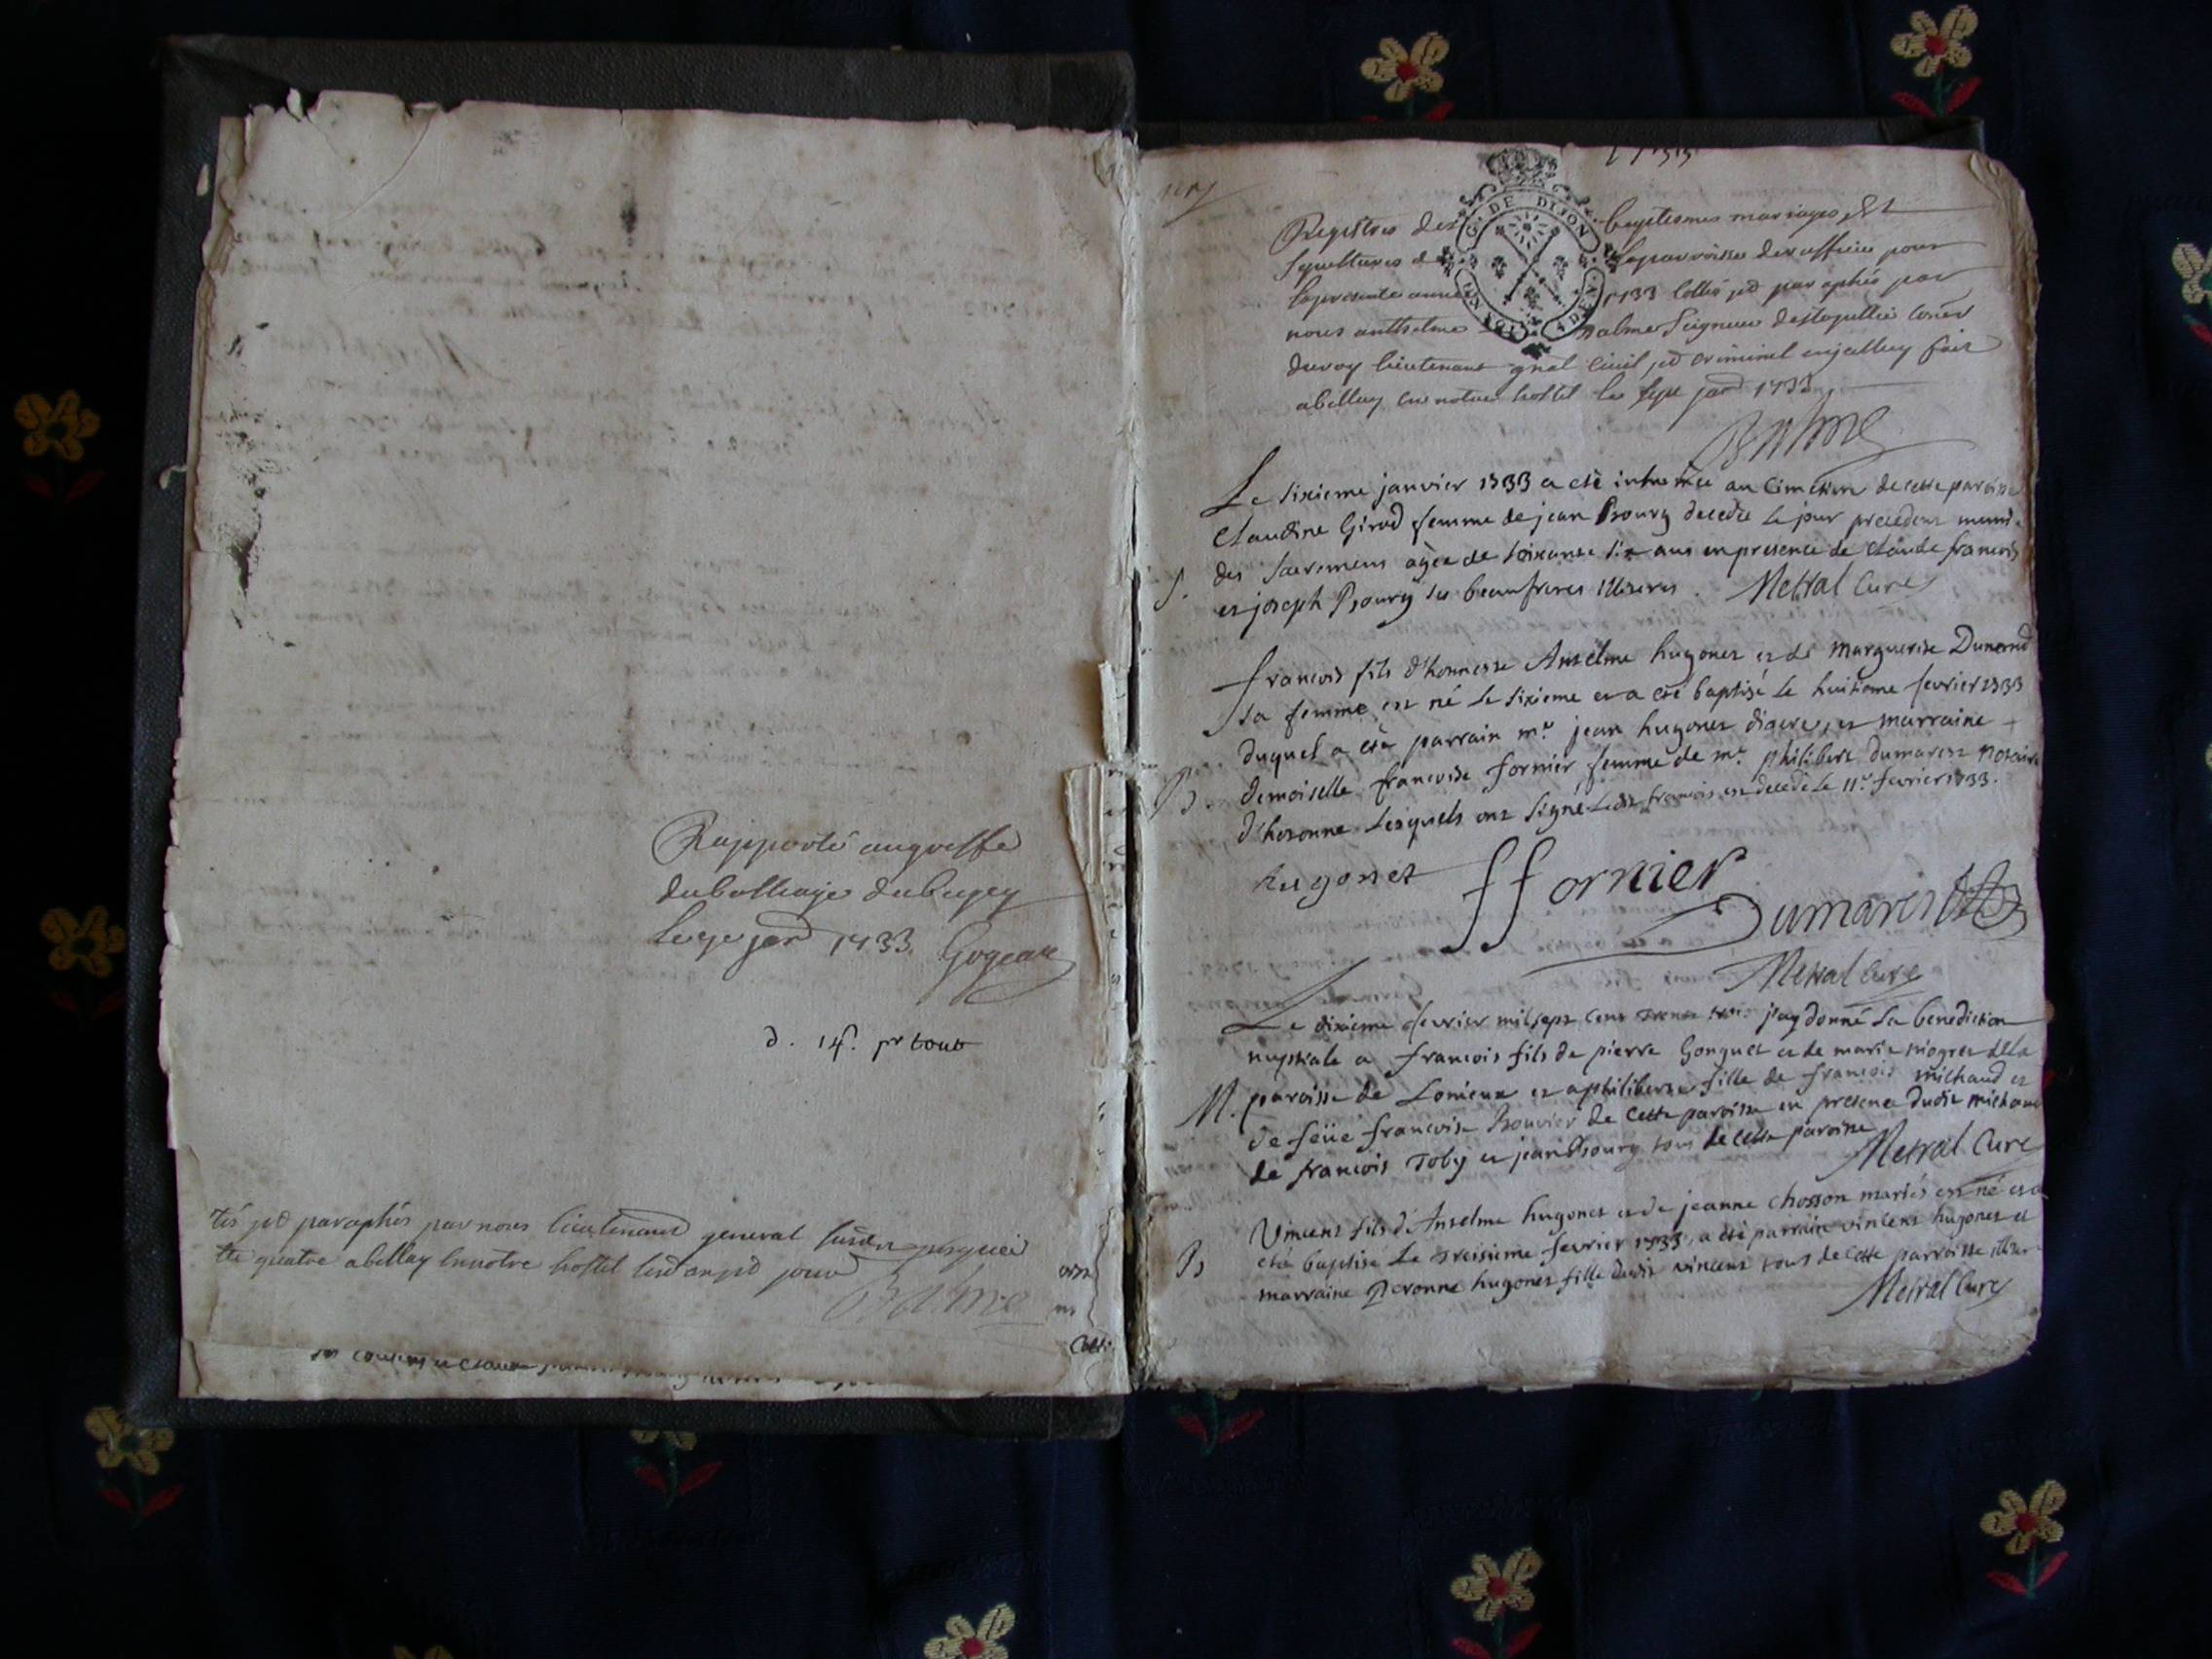 Rapporté au greffe
du balliage du bugey
le 9e janr 1733. Gogeat
d. 14s. pr tout
tés et paraphés par nous lieutenant general susdit
te quatre a bellay en notre hostel
Balme
1733
Registres des baptesmes mariages Et
G. DE DIJON
sepultures de la parroisse
la presente année 1733 cottés et paraphés par
nous anthelme Balme Seigneur
du roy lieutenant gnal civil et criminel
a bellay en notre hostel le janr 1733
Balme
Le sixieme janvier 1733 a eté inhumée au cimetiere de cette paroisse
Claudine Girod femme de jean Bourg decedée le jour precedent munie
S. des sacremens agée de soixante six ans en presence de Claude francois
et joseph Bourg ses beaufreres illiteres. Metral Curé
francois fils d'honneste Anselme hugonet et de Marguerite Dunand
sa femme est né le sixieme et a eté baptisé le huitieme fevrier 1733
duquel a eté parrain mr. jean hugonet diacre, et marraine
B. demoiselle francoise fornier femme de me. philibert dumarest notaire
d'hotonne lesquels ont signé Ledit francois est decedé le 11e. fevrier 1733.
hugonet ffornier
Dumarest
Metral Curé
Le dixieme fevrier mil sept cent trente trois j'ay donné la benediction
nuptiale a francois fils de pierre Gonguet et de marie de la
M. paroisse de Lomieux et a philiberte fille de francois michaud et
de feüe francoise Bouvier de cette paroisse en presence dudit michaud
de francois Toby et jean Bourg tous de cette paroisse
Metral Curé
Vincent fils d'Anselme hugonet et de jeanne chosson mariés est né et a
B eté baptisé Le treisieme fevrier 1733, a eté parrain vincent hugonet et
marraine Peronne hugonet fille dudit vincent tous de cette parroisse
Metral Curé